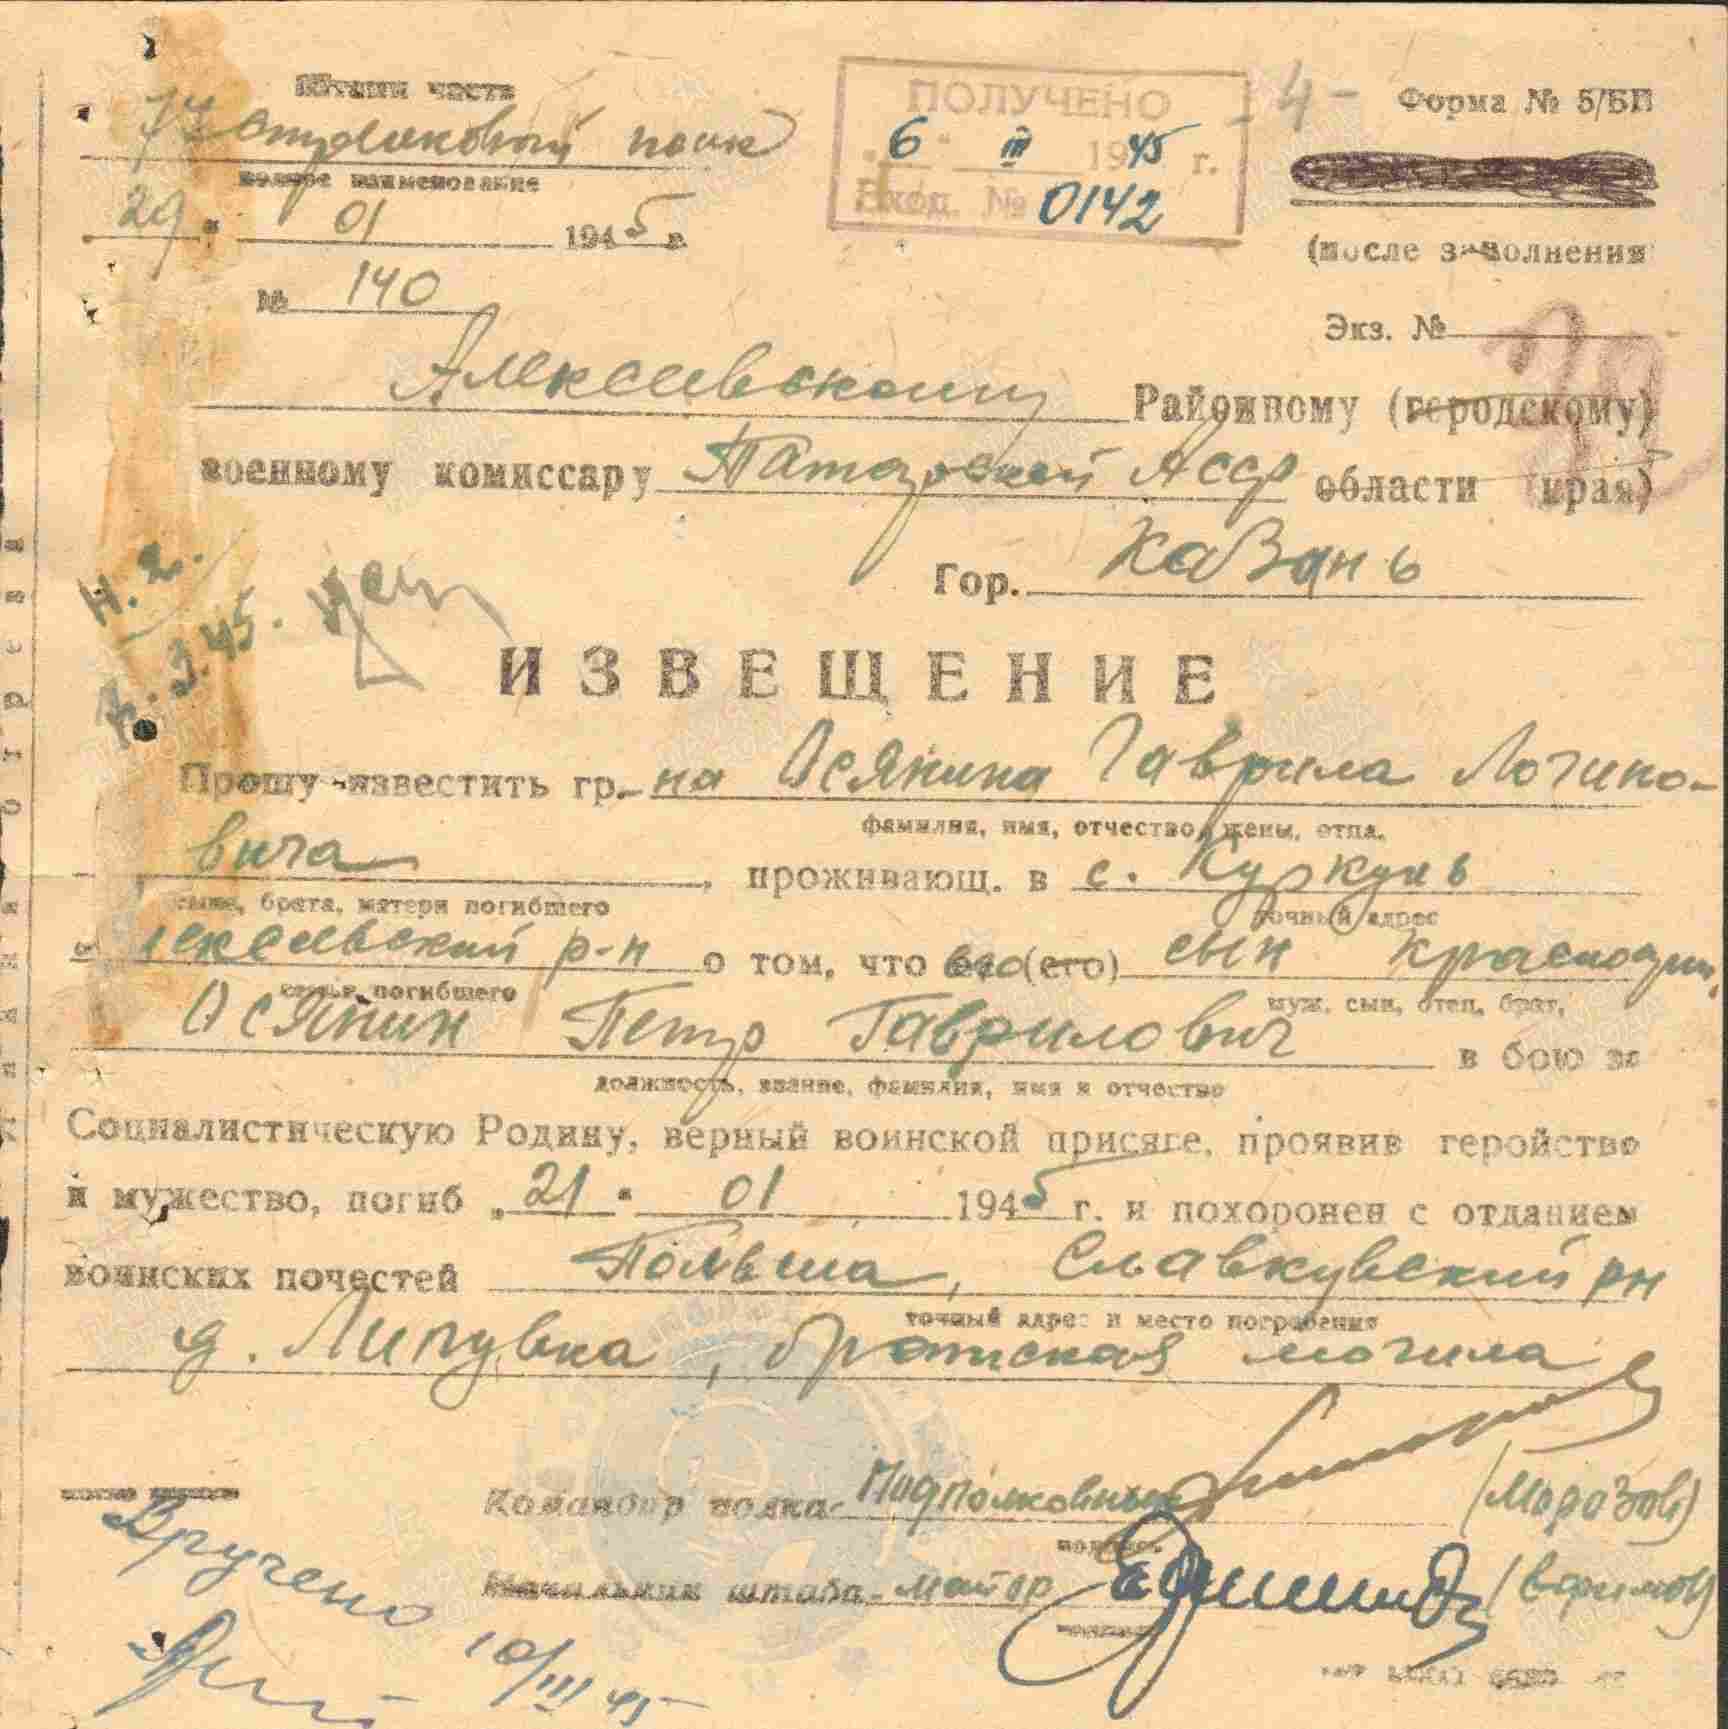 Штамп части
74 стрелковый полк
полное наименование
"29" 01 1945 г.
№ 140
ПОЛУЧЕНО
"6" III 1945 г.
Вход. № 0142
-4-
Форма № 5/БП
(после заполнения
Экз. №
Алексеевскому Районному (городскому)
военному комиссару Татарской АССР области (края)
Гор. Казань
ИЗВЕЩЕНИЕ
Прошу известить гр.-на Осянина Гаврила Логино-
фамилия, имя, отчество, жены, отца,
вича, проживающ. в с. Куркуль
сына, брата, матери погибшего
точный адрес
Алексеевский р-н о том, что его (его) сын красноарм.
семьи погибшего
муж, сын, отец, брат,
Осянин Петр Гаврилович в бою за
должность, звание, фамилия, имя и отчество
Социалистическую Родину, верный воинской присяге, проявив геройство
и мужество, погиб "21" 01 1945 г. и похоронен с отданием
воинских почестей Польша, Славкувский рн
точный адрес и место погребения
д. Липувка, братская могила
Командир полка - Подполковник (Морозов)
подпись
Начальник штаба - майор
Вручено
10/III 45